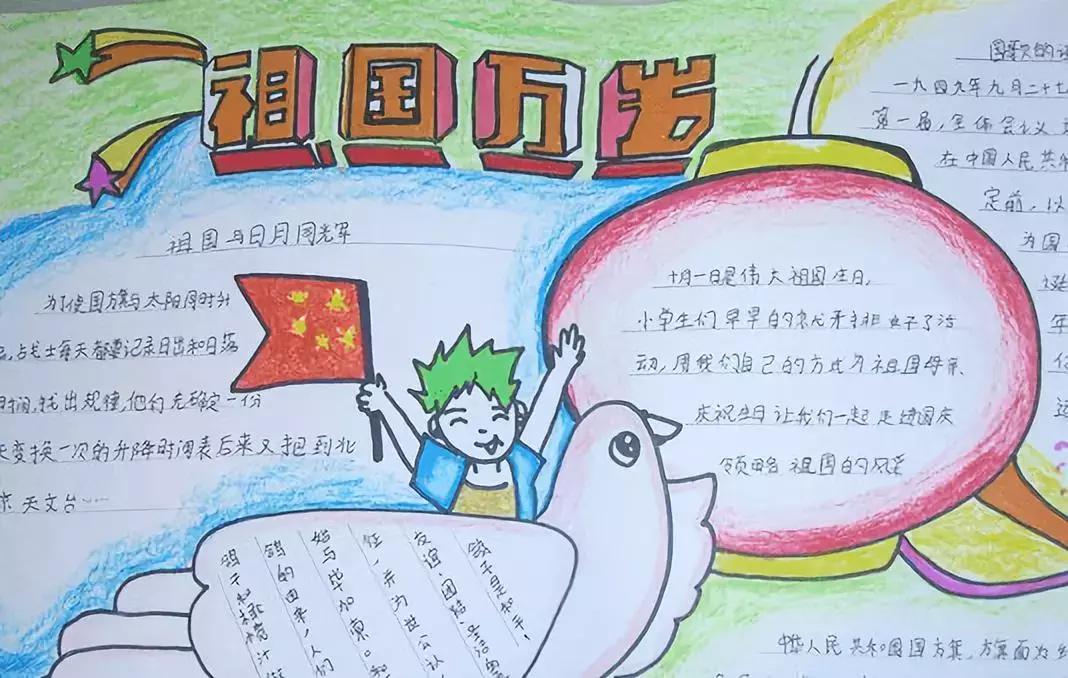 祖国万岁
祖国与日月同光辉
为了使国旗与太阳同时升
战士每天都要记录日出和日落
时间,找出规律,他们先确定一份
变换一次的升降时间表后来又把到北
京天文台……
十月一日是伟大祖国生日,
小学生们早早的就开始
动,用我们自己的方式为祖国母亲
庆祝生日让我们一起走进国庆
领略祖国的风采
国歌的
一九四九年九月二十七
第一届,全体会议
在中国人民共和
定前,以
为国
诞
年
鸽子是和平、
友谊、团结、
征,并为世公认
始与毕加索。和
鸽的由来,人们
鸽子和橄榄汁
中华人民共和国国方旗,方旗面为红